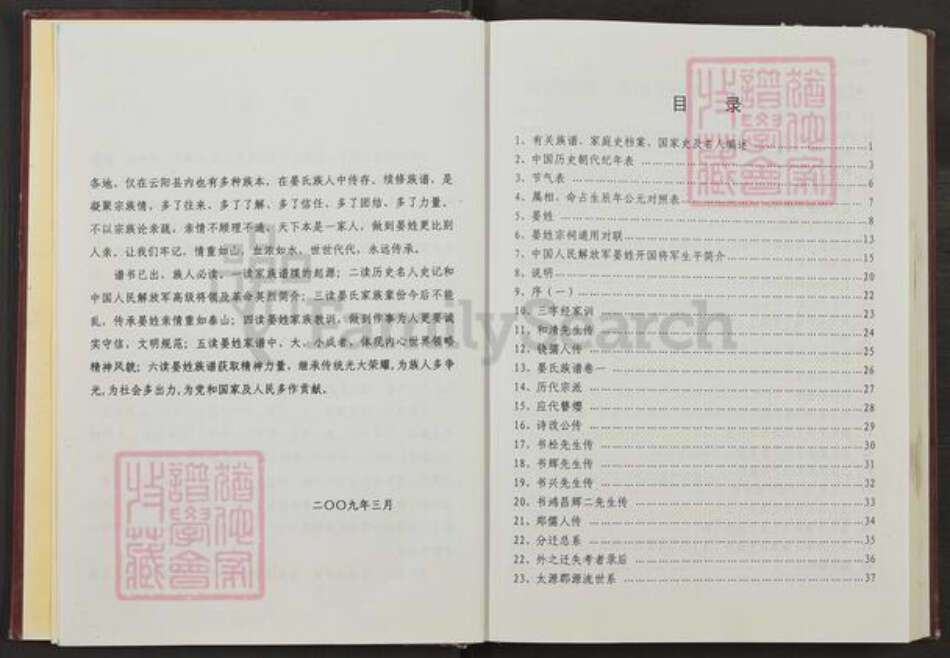 各地、仅在云阳县内也有多种族本，在晏氏族人中传存。续修族谱，是
凝聚宗族情，多了往来、多了了解、多了信任、多了团结、多了力量。
不以宗族论亲疏，亲情不顺理不通，天下本是一家人，做到晏姓更比别
人亲。让我们牢记，情重如山，血浓如水，世世代代，永远传承。
谱书已出，族人必读。一读家族谱牒的起源；二读历史名人史记和
中国人民解放军高级将领及革命英烈简介；三读晏氏家族辈份今后不能
乱，传承晏姓亲情重如泰山；四读晏姓家族教训，做到作事为人更要诚
实守信，文明规范；五读晏姓家谱中、大、小成者，体现内心世界领略
精神风貌；六读晏姓族谱获取精神力量，继承传统光大荣耀，为族人多争
光，为社会多出力，为党和国家及人民多作贡献。
二〇〇九年三月
猶他家
譜學會
收藏
目 录
1、有关族谱、家庭史档案、国家史及名人编述 …… 1
2、中国历史朝代纪年表 …… 3
3、节气表 …… 6
4、属相、命占生辰年公元对照表 …… 7
5、晏姓 …… 8
6、晏姓宗祠通用对联 …… 13
7、中国人民解放军晏姓开国将军生平简介 …… 15
8、说明 …… 20
9、序（一） …… 22
10、三字经家训 …… 23
11、和清先生传 …… 24
12、镜湖人传 …… 25
13、晏氏族谱卷一 …… 26
14、历代宗派 …… 27
15、应代簪缨 …… 28
16、诗改公传 …… 29
17、书松先生传 …… 30
18、书辉先生传 …… 31
19、书兴先生传 …… 32
20、书鸿昌辉二先生传 …… 33
21、郑儒人传 …… 34
22、分迁总系 …… 35
22、外之迁失考者录后 …… 36
23、太源郡源流世系 …… 37
猶他家
譜學會
收藏
FamilySearch